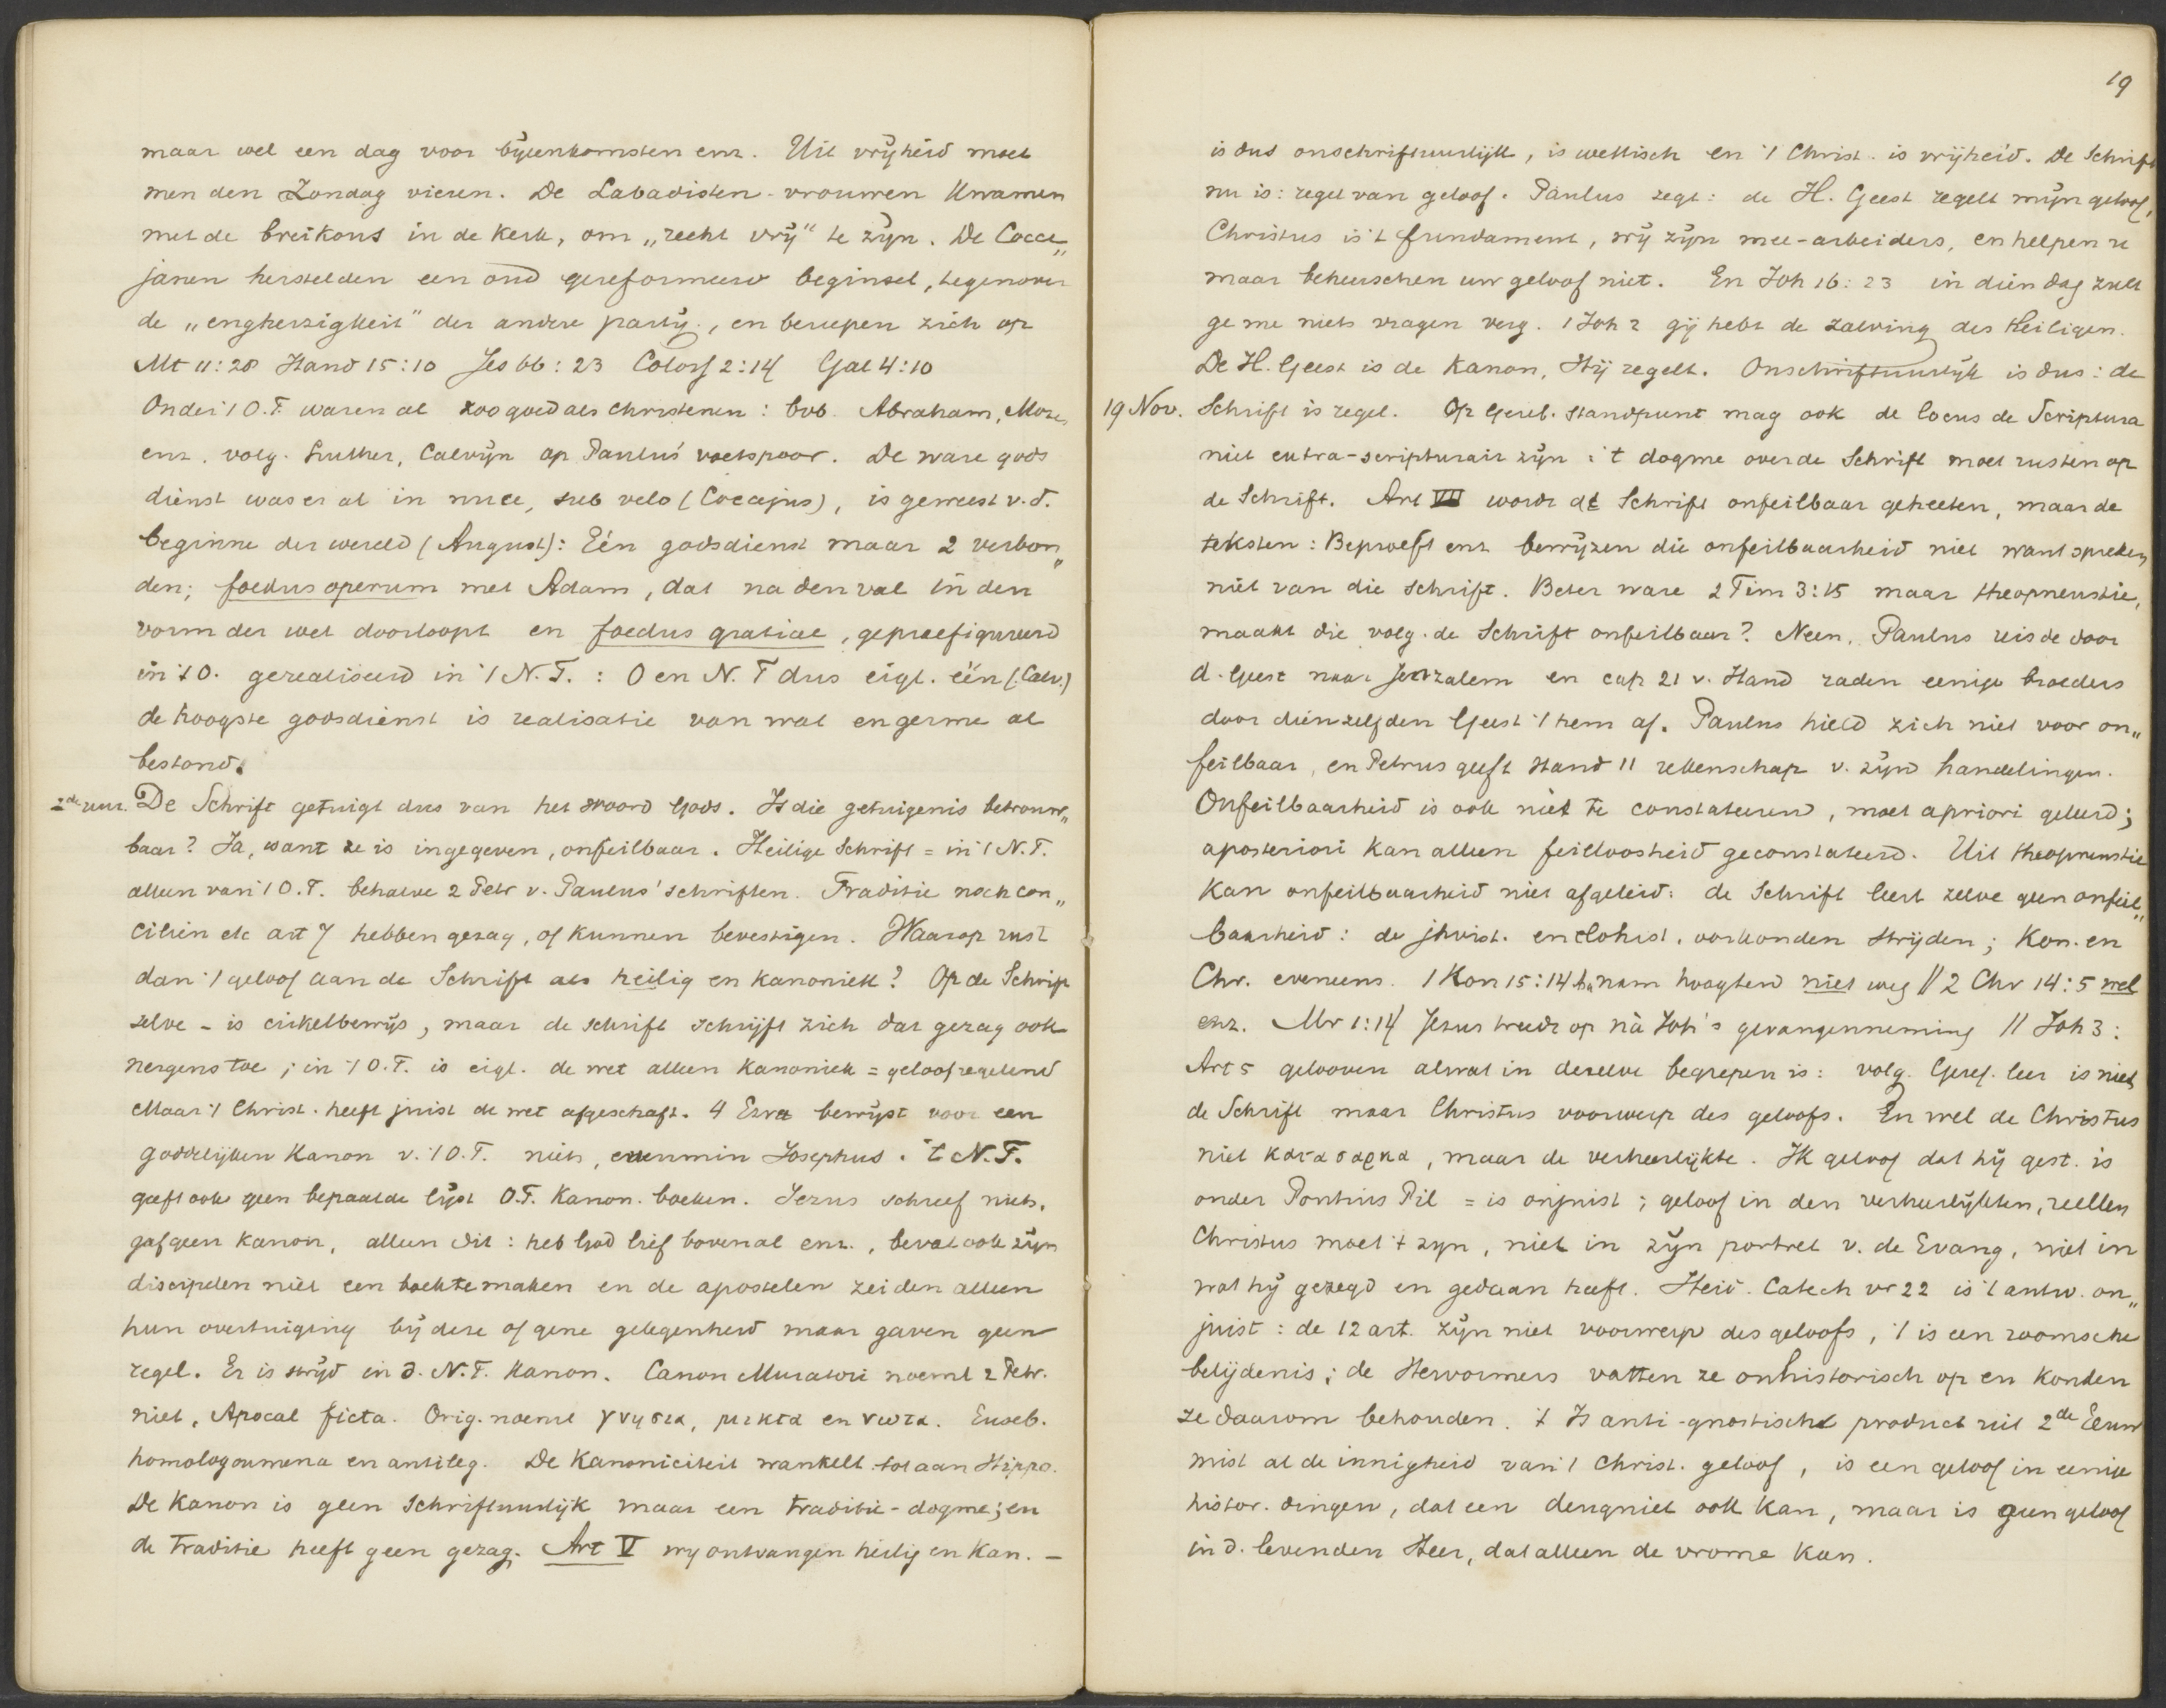 maar wel een dag voor bijeenkomsten enz. Uit vrijheid moet
men den Zondag vieren. De Labadisten-vrouwen kwamen
met de breikous in de kerk, om „recht vrij" te zijn. De Cocce„
janen herstelden een oud gereformeerd beginsel, tegenover
de „engherzigheit" der andere partij, en beriepen zich op
Mt 11:28 Hand 15:10 Jes 66:23 Coloss 2:14 Gal 4:10
Onder 't O.T. waren al zoo goed als christenen: bvb. Abraham, Mozes
enz. volg. Luther, Calvijn op Paulus' voetspoor. De ware gods
dienst was er al in nuce, sub velo (Coccejus), is geweest v. d.
beginne der wereld (August): Eén godsdienst maar 2 verbon„
den; foedus operum met Adam, dat na den val in den
vorm der wet doorloopt en foedus gratiae, gepraefigureerd
in 't O. gerealiseerd in 't N.T. : O en N.T dus eigl. één (Calv.)
de hoogste godsdienst is realisatie van wat en germe al
bestond.
2de uur. De Schrift getuigt dus van het woord Gods. Is die getuigenis betrouw„
baar? Ja, want ze is ingegeven, onfeilbaar. Heilige Schrift = in 't N.T.
alleen van 't O.T. behalve 2 Petr v. Paulus' schriften. Traditie noch con„
ciliën etc art 7 hebben gezag, of kunnen bevestigen. Waarop rust
dan 't geloof aan de Schrift als heilig en kanoniek? Op de Schrift
zelve - is cirkelbewijs, maar de schrift schrijft zich dat gezag ook
nergens toe; in 't O.T. is eigl. de wet alleen kanoniek = geloofregelend
Maar 't Christ. heeft juist de wet afgeschaft. 4 Ezra bewijst voor een
goddelijken Kanon v. 't O.T. niets, evenmin Josephus. 't N.T.
geeft ook geen bepaalde lijst O.T. Kanon. boeken. Jezus schreef niets,
gaf geen kanon, alleen dit: heb God lief bovenal enz., beval ook zijn
discipelen niet een boek te maken en de apostelen zeiden alleen
hun overtuiging bij deze of gene gelegenheid maar gaven geen
regel. Er is strijd in d. N.T. kanon. Canon Muratori noemt 2 Petr.
niet, Apocal ficta. Orig. noemt γνησια, μικτα en νωτα. Euseb.
homologoumena en antileg. De Kanoniciteit wankelt tot aan Hippo.
De kanon is geen schriftuurlijk maar een traditie-dogme; en
de traditie heeft geen gezag. Art V wy ontvangen heilig en Kan. -
19
is dus onschriftuurlijk, is wettisch en 't Christ. is vrijheid. De Schrift
nu is: regel van geloof. Paulus zegt: de H. Geest regelt mijn geloof,
Christus is 't fundament, wij zijn mee-arbeiders, en helpen u
maar beheerschen uw geloof niet. En Joh 16:23 in dien dag zult
ge me niets vragen verg. 1 Joh 2 gij hebt de zalving des Heiligen.
De H. Geest is de Kanon, Hij regelt. Onschriftuurlijk is dus: de
19 Nov. Schrift is regel. Op Geref. standpunt mag ook de locus de Scriptura
niet extra-scripturair zijn: 't dogme over de Schrift moet rusten op
de Schrift. Art VII wordt de Schrift onfeilbaar geheeten, maar de
teksten: Beproeft enz bewijzen die onfeilbaarheid niet want spreken
niet van die schrift. Beter ware 2 Tim 3:15 maar theopneustie,
maakt die volg. de Schrift onfeilbaar? Neen. Paulus reisde door
d. Geest naar Jeruzalem en cap 21 v. Hand raden eenige broeders
door dienzelfden Geest 't hem af. Paulus hield zich niet voor on„
feilbaar, en Petrus geeft Hand 11 rekenschap v. zijne handelingen.
Onfeilbaarheid is ook niet te constateeren, moet apriori geleerd;
aposteriori kan alleen feilloosheid geconstateerd. Uit theopneustie
kan onfeilbaarheid niet afgeleid: de Schrift leert zelve geen onfeil„
baarheid: de jhvist. en elohist. oorkonden strijden; Kon. en
Chr. eveneens. 1 Kon 15:14 nam hoogten niet weg // 2 Chr 14:5 wel
enz. Mr 1:14 Jezus treedt op nà Joh's gevangenneming // Joh 3:
Art 5 gelooven alwat in dezelve begrepen is: volg. Geref. leer is niet
de Schrift maar Christus voorwerp des geloofs. En wel de Christus
niet κατα σαρκα, maar de verheerlijkte. Ik geloof dat hij gest. is
onder Pontius Pil = is onjuist; geloof in den verheerlijkten, reëllen
Christus moet 't zyn, niet in zijn portret v. de Evang, niet in
wat hij gezegd en gedaan heeft. Heid. Catech vr 22 is 't antw. on„
juist: de 12 art. zijn niet voorwerp des geloofs, 't is een roomsche
belijdenis; de Hervormers vatten ze onhistorisch op en konden
ze daarom behouden. 't Is anti-gnostisch product uit 2de Eeuw
mist al de innigheid van 't Christ. geloof, is een geloof in eenige
histor. dingen, dat een deugniet ook kan, maar is geen geloof
in d. levenden Heer, dat alleen de vrome kan.